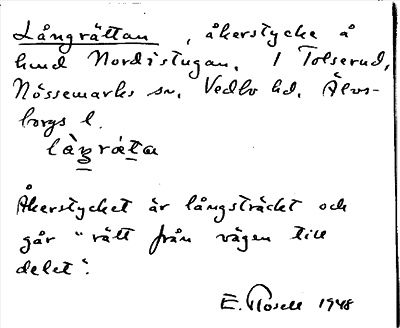 Långrättan, åkerstycke å
hmd Nordistugan, i Tolserud,
Nössemarks sn, Vedbo hd, Älvs-
borgs l.
làŋrǽta
Åkerstycket är långsträckt och
går "rätt från vägen till
delet".
E. Rosell 1948